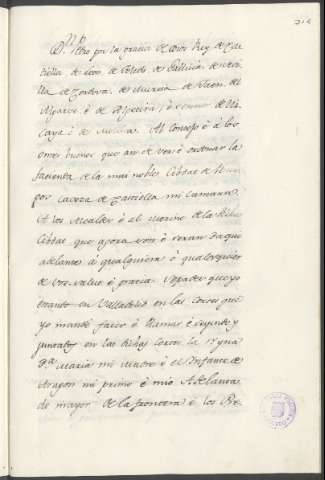 212
Dn. Pedro por la gracia de Dios Rey de Cas
tiella de Leon, de Toledo de Gallicia, de Sevi
lla, de Cordova, de Murcia, de Jaen del
Algarve, é de Algecira, é
caya é de Molina. Al Concejo é á los
omes buenos que an de ver é ordenar la
facienda de la mui noble Cibdat de
por caveza de Castiella mi camara
A los Alcaldes é el Merino de la dicha
Cibdat que agora son ó seran daqui
adelante á qualquiera ó qualesquier
de vos salut é gracia. Sepades que yo
estando en Valladolid en las Cortes que
yo mandé facer é llamar é seyendo y
juntados en las dichas Cortes la Reyna
Dª. Maria mi Madre é el Infante de
Aragon mi primo é mio Adelanta
do mayor de la frontera é los Pe